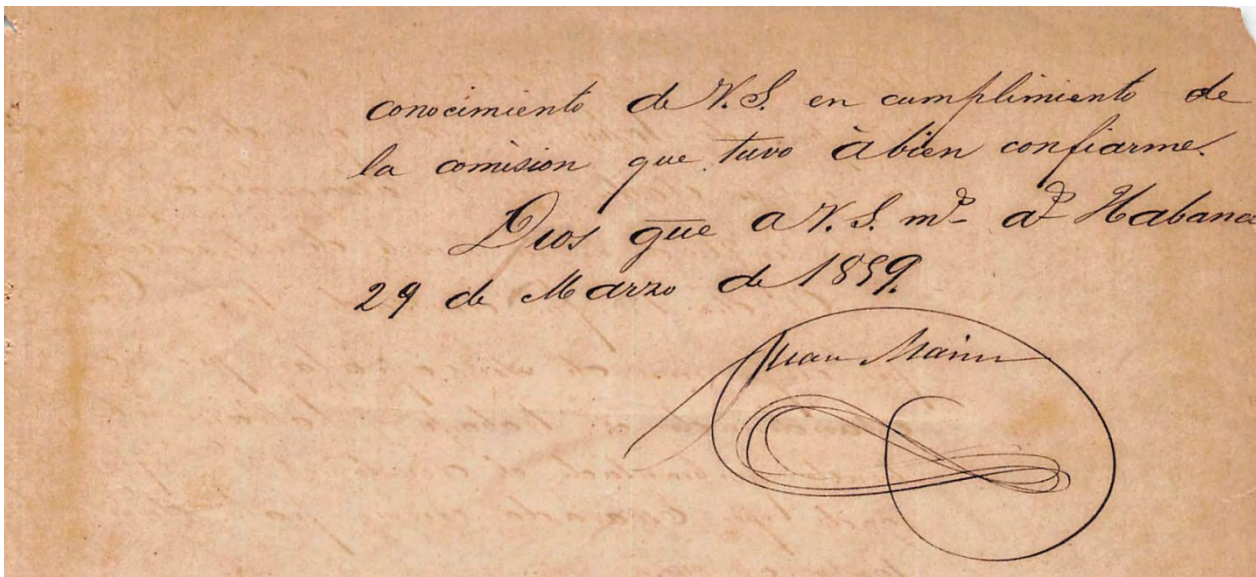 conocimiento de V.S. en cumplimiento de
la comision que tuvo à bien confiarme.
Dios gue a V.S. ms. as. Habana
29 de Marzo de 1859.
Juan